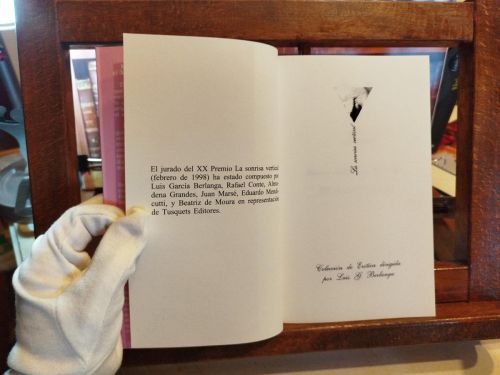 El jurado del XX Premio La sonrisa vertical
(febrero de 1998) ha estado compuesto por
Luis García Berlanga, Rafael Conte, Almu-
dena Grandes, Juan Marsé, Eduardo Mendi-
cutti, y Beatriz de Moura en representación
de Tusquets Editores.
La sonrisa vertical
Colección de Erótica dirigida
por Luis G Berlanga